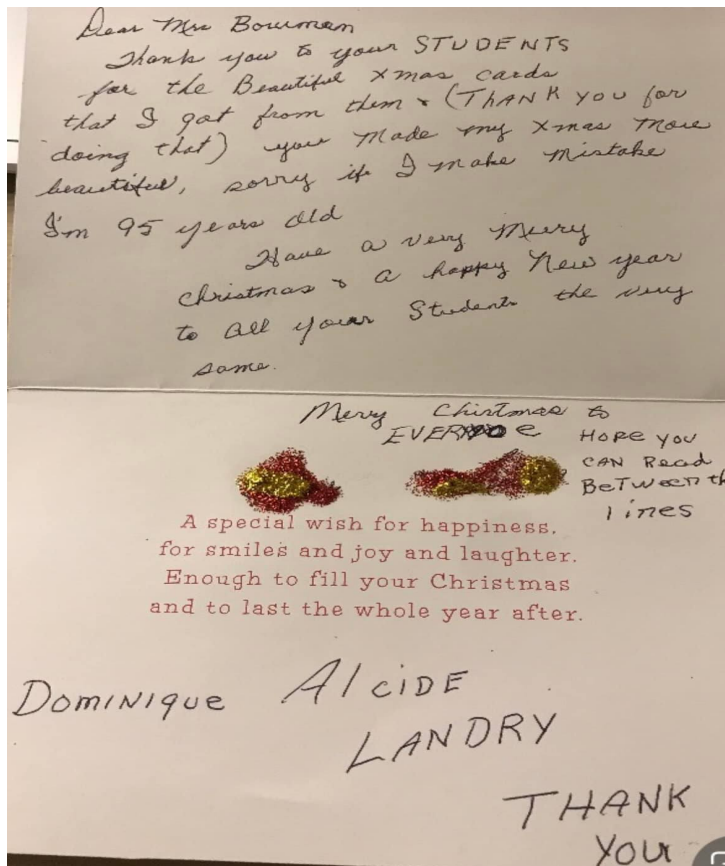 Dear Mrs Bowman
Thank you to your STUDENTS
for the Beautiful xmas cards
that I got from them & (THANK YOU for
doing that) you Made my Xmas More
beautiful, sorry if I make Mistake
I'm 95 years old
Have a very Merry
christmas & a happy New year
to all your Students the very
same.
Merry Chirtmas to
EVERYOE
HOPE YOU
CAN Read
BeTween th
lines
A special wish for happiness,
for smiles and joy and laughter.
Enough to fill your Christmas
and to last the whole year after.
DOMINIque AlciDE
LANDRY
THANK
You